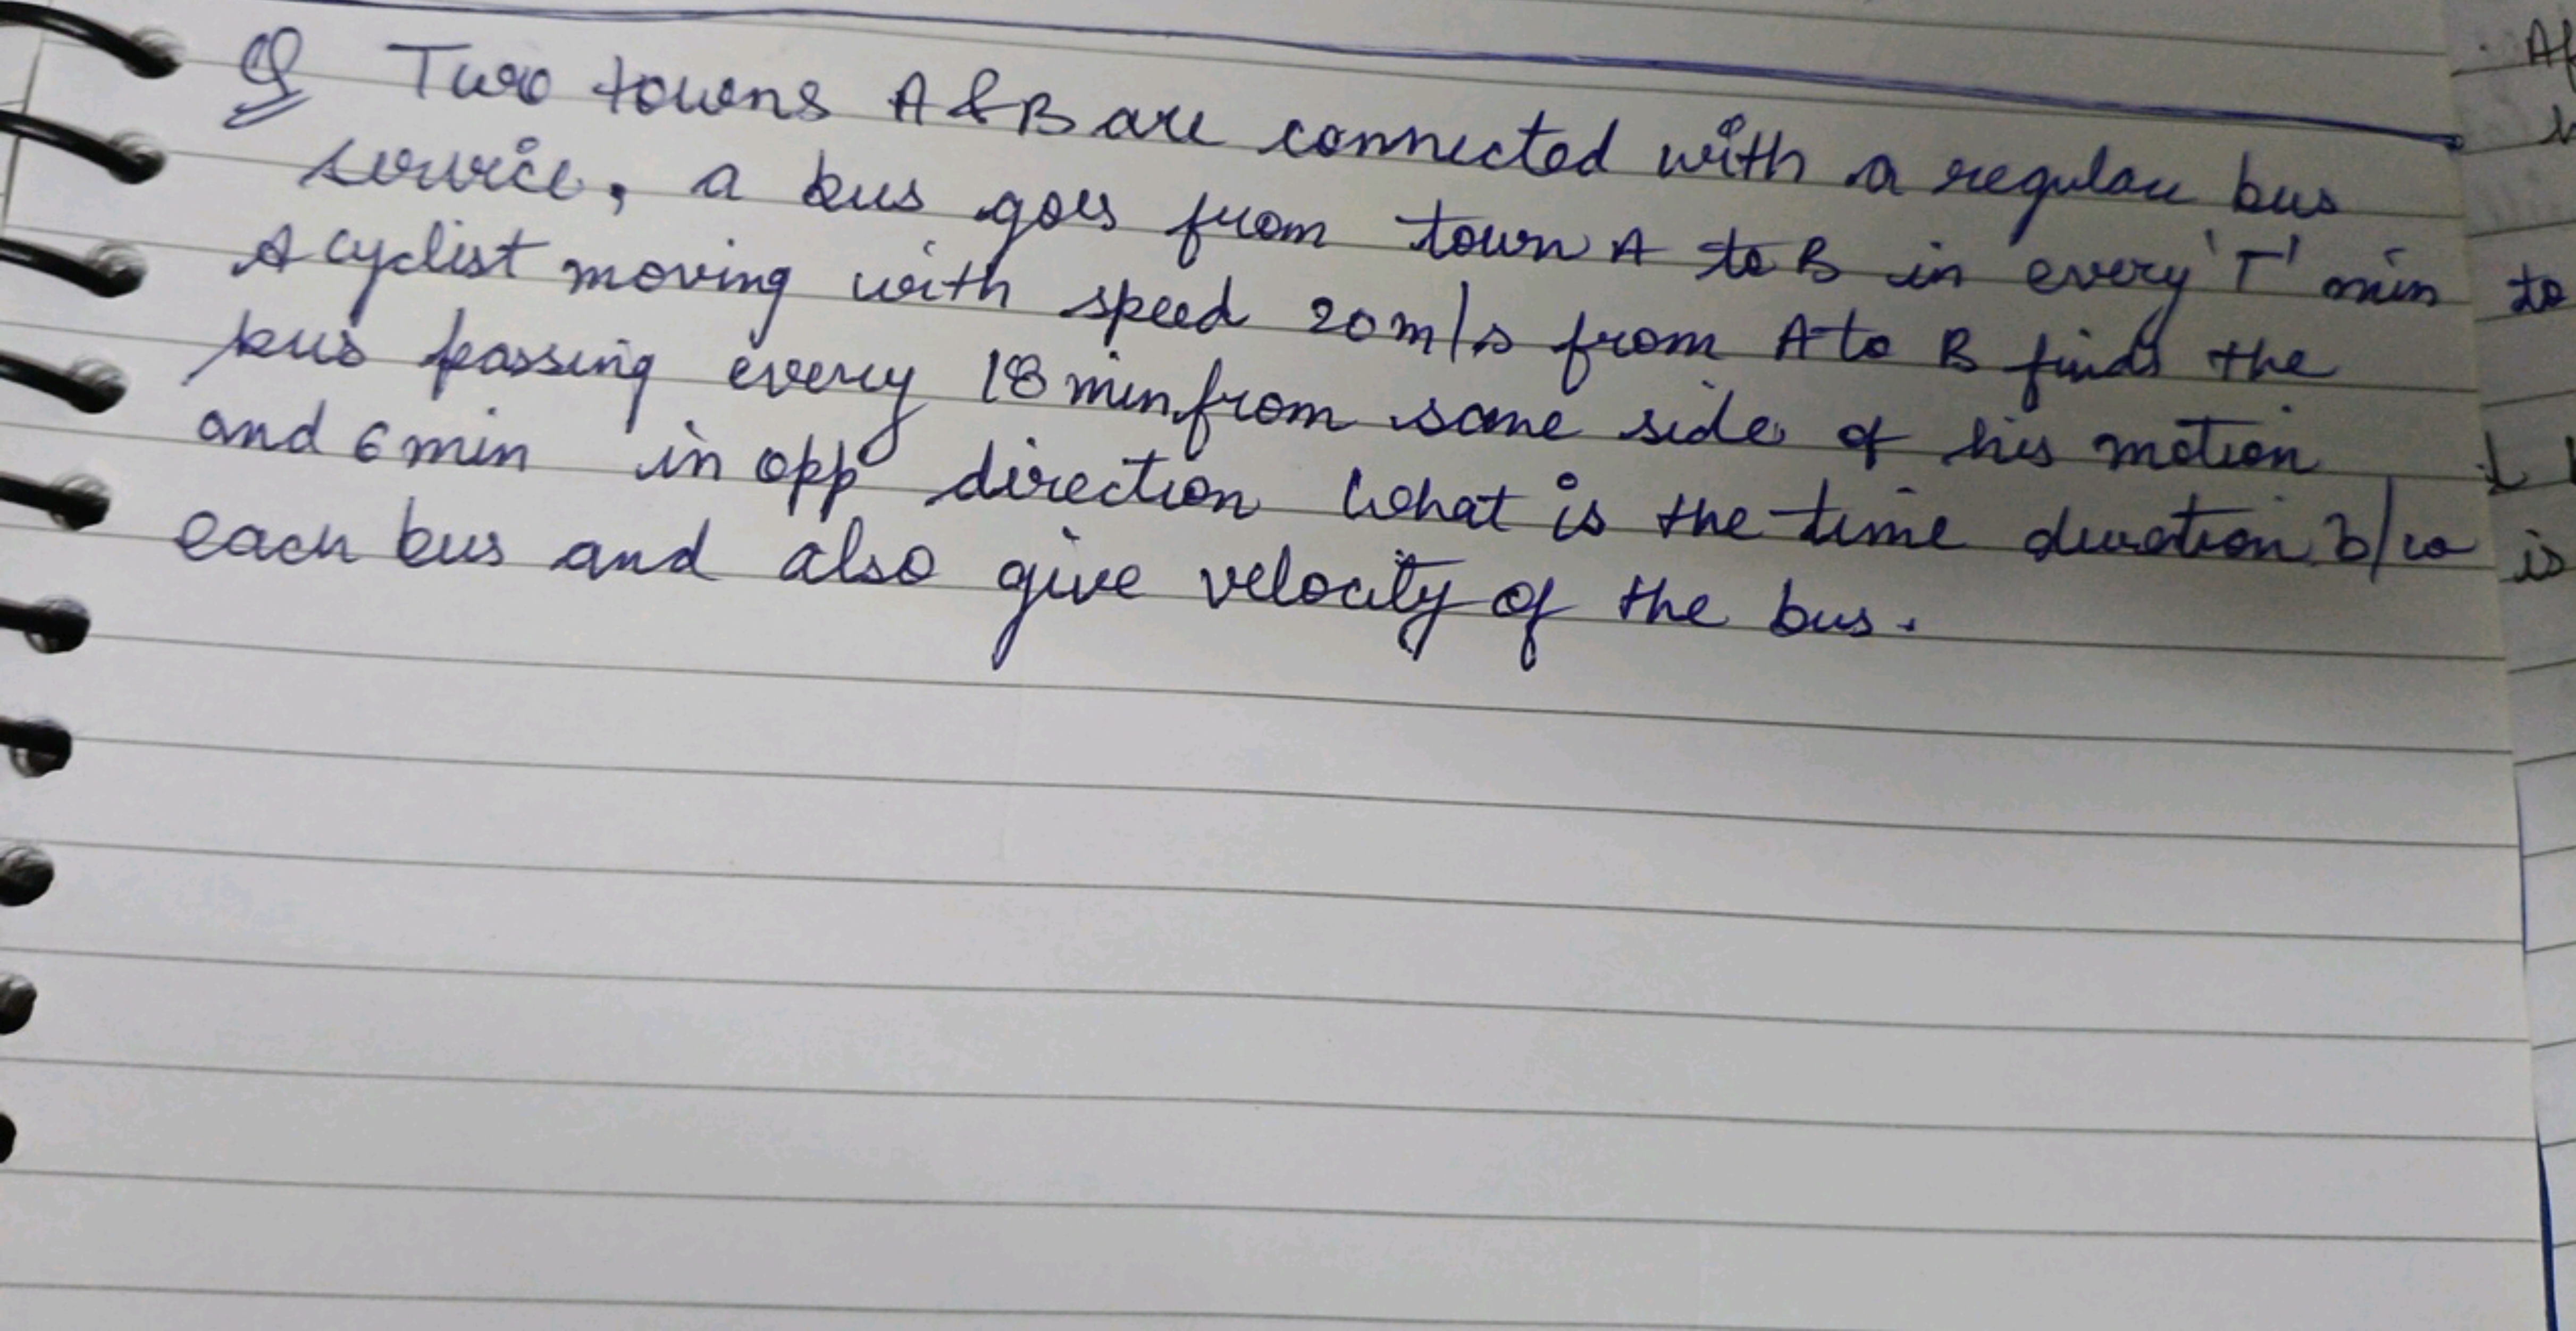 Q Two towns A & B are connected with a regular bus
service, a bus goes from town A to B in every 'T' min
A cyclist moving with speed 20 m/s from A to B finds the
bus passing every 18 min from same side of his motion
and 6 min in opp direction What is the time duration b/w
each bus and also give velocity of the bus.
to
is